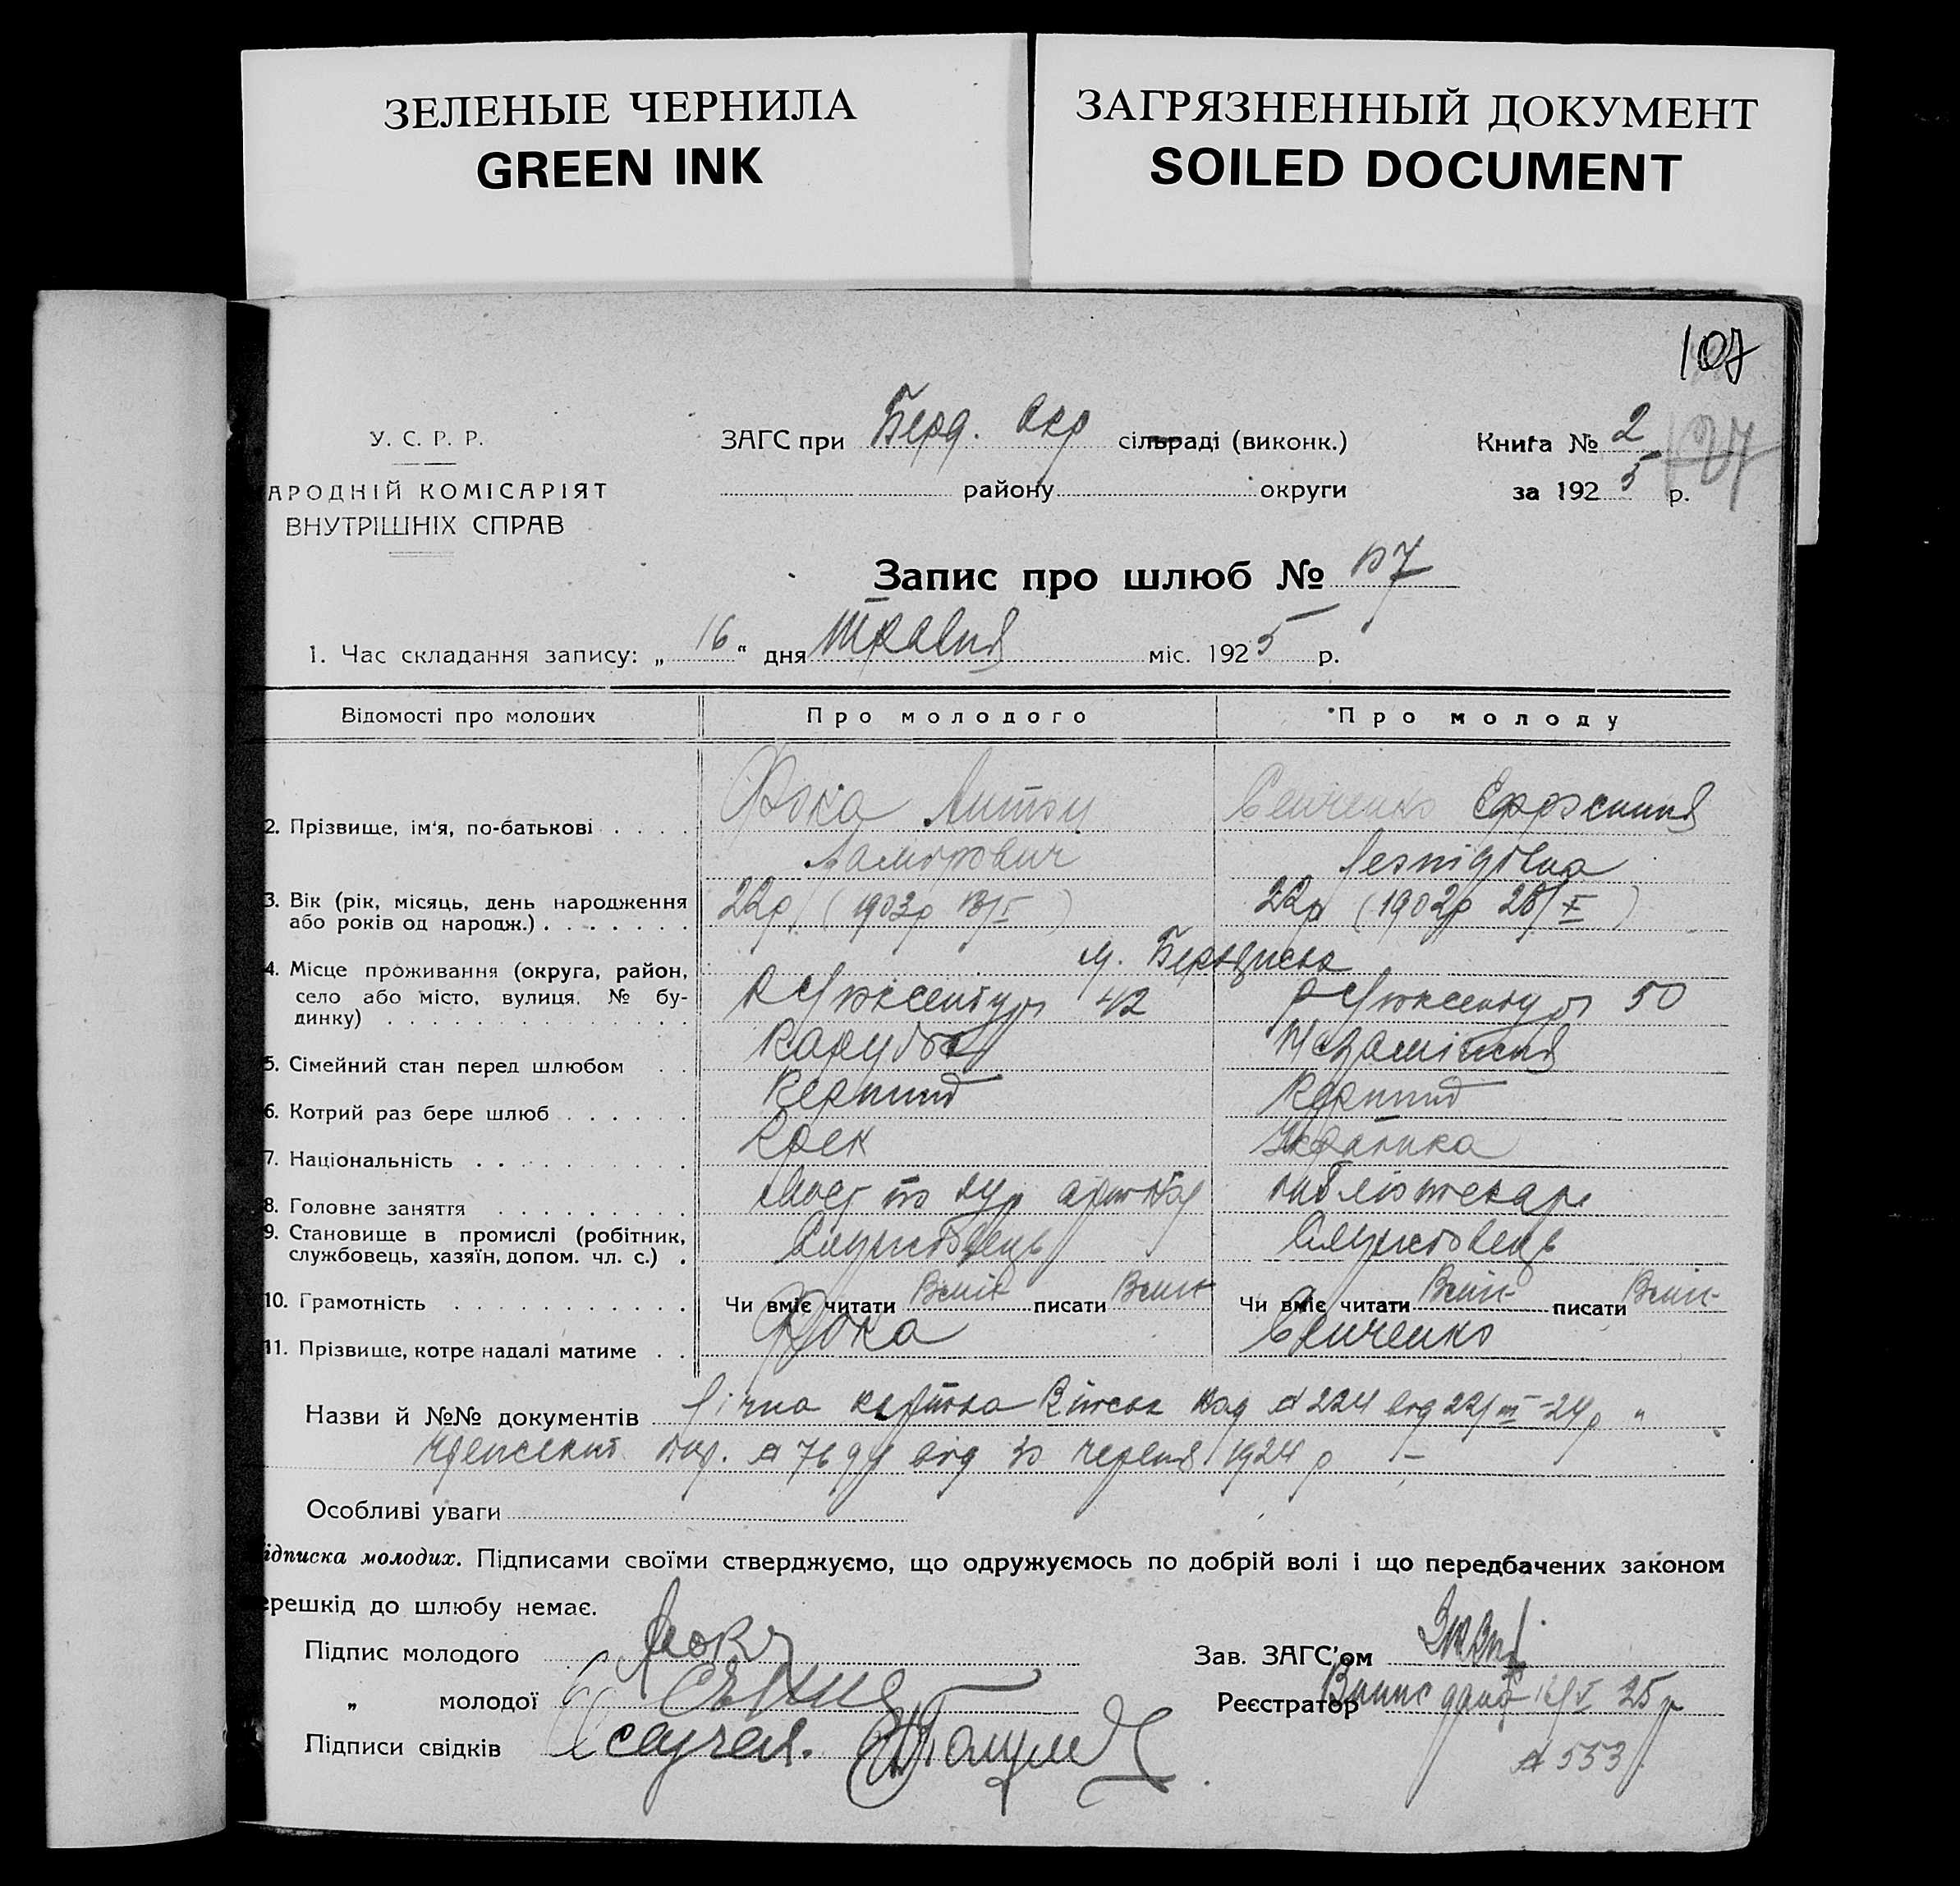 ЗЕЛЕНЫЕ ЧЕРНИЛА
GREEN INK
ЗАГРЯЗНЕННЫЙ ДОКУМЕНТ
SOILED DOCUMENT
107
У. С. Р. Р.
АРОДНІЙ КОМІСАРІЯТ
ВНУТРІШНІХ СПРАВ
ЗАГС при Берд. Окр сільраді (виконк.)
району округи
Книга № 2
за 1925 р.
127
Запис про шлюб №
1. Час складання запису: „16" дня травня міс. 1925 р.
Відомості про молодих
Про молодого
Про молоду
2. Прізвище, ім'я, по-батькові
Фока Антон
Сенченко Єфросиния
3. Вік (рік, місяць, день народження або років од народж.)
22р (1903р 13/V)
22р (1902р 28/X)
4. Місце проживання (округа, район, село або місто, вулиця, № будинку)
м. Бердянськ
Р Люксембург 42
Р Люксембург 50
5. Сімейний стан перед шлюбом
Парубок
Незаміжня
6. Котрий раз бере шлюб
Перший
Перший
7. Національність
Грек
Українка
8. Головне заняття
бібліотекарь
9. Становище в промислі (робітник, службовець, хазяїн, допом. чл. с.)
Службовець
Службовець
10. Грамотність
Чи вміє читати Вміє писати Вміє
Чи вміє читати Вміє писати Вміє
11. Прізвище, котре надалі матиме
Фока
Сенченко
Назви й №№ документів картка № 224 від 22/III-24р "
Членський № від червня 1924 р –
Особливі уваги
ідписка молодих. Підписами своїми стверджуємо, що одружуємось по добрій волі і що передбачених законом
ерешкід до шлюбу немає.
Підпис молодого Фока
„ молодої
Підписи свідків
Зав. ЗАГС'ом
Реєстратор
Випис 16/V 25р
№ 553